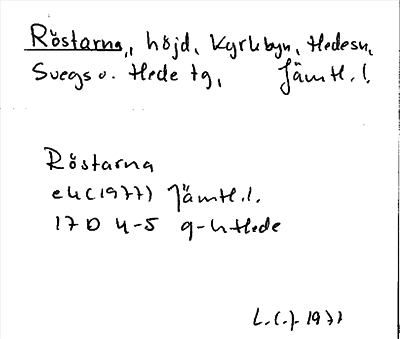 Röstarna, höjd, Kyrkbyn, Hedesn,
Svegs o. Hede tg, Jämtl. l.
Röstarna
ek (1977) Jämtl. l.
17 D 4-5 g-h Hede
L. (.). 1977